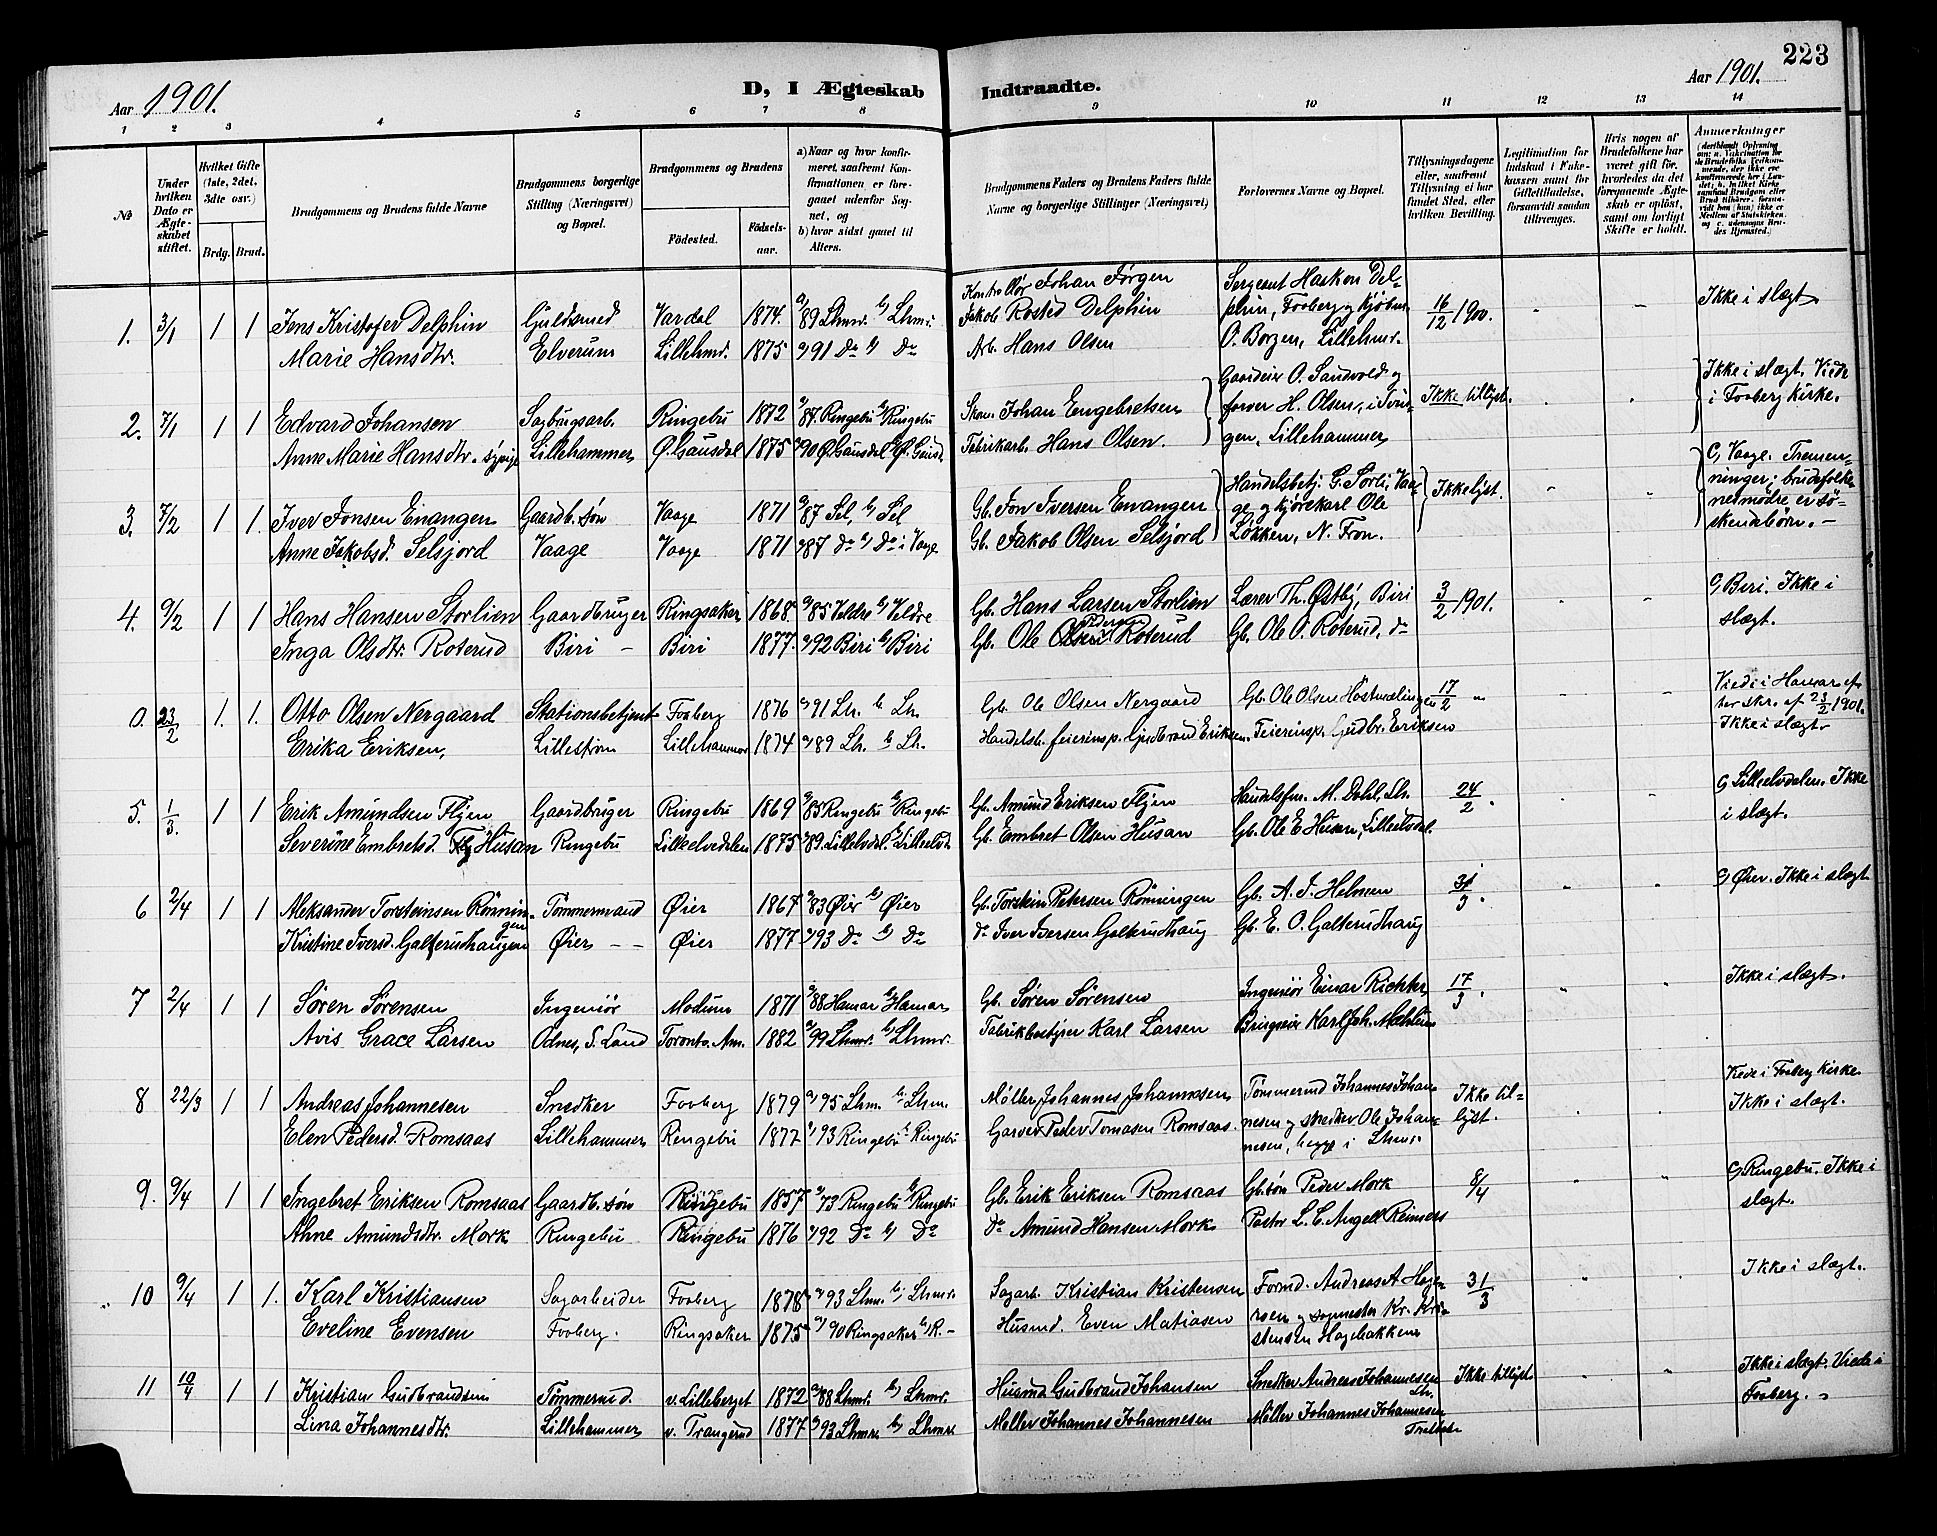 223
Aar 1901.
D, I Ægteskab Indtraadte.
Aar 1901.
1 2 3 4 5 6 7 8 9 10 11 12 13 14
No
Under hvilken Dato er Ægteskabet stiftet.
Hvilket Gifte (1ste, 2det, 3dte osv.)
Brdg. Brud.
Brudgommens og Brudens fulde Navne
Brudgommens borgerlige Stilling (Næringsvei) og Bopæl.
Brudgommens og Brudens
Fødested. Fødselsaar.
a) Naar og hvor konfirmeret, saafremt Konfirmationen er foregaaet udenfor Sognet, og
b) hvor sidst gaaet til Alters.
Brudgommens Faders og Brudens Faders fulde Navne og borgerlige Stillinger (Næringsvei)
Forlovernes Navne og Bopæl.
Tillysningsdagene eller, saafremt Tillysning ei har fundet Sted, efter hvilken Bevilling.
Legitimation for Indskud i Enkekassen samt for Giftetilladelse, forsaavidt saadan tiltrænges.
Hvis nogen af Brudefolkene har været gift før, hvorledes da det foregaaende Ægteskab er opløst, samt om lovligt Skifte er holdt.
Anmærkninger
1. 3/1 1 1 Jens Kristofer Delphin Guldsmed Vardal 1874. a) 89 Lhmr. b) Lhmr. Kontrollør Johan Jørgen Jakob Rosted Delphin Sergeant Haakon Delphin, Faaberg og Kjøbm. O. Borgen, Lillehmr. 16/12 1900. Ikke i slægt.
Marie Hansdtr. Elverum Lillehmr. 1875 a) 91 Do b) Do Arb. Hans Olsen
2. 7/1 1 1 Edvard Johansen Sagbrugsarb. Ringebu 1872 a) 87. Ringebu b) Ringebu Skom. Johan Engebretsen Gaardeier O. Sandvold og farver H. Olsen, i Svingen, Lillehammer Ikke tillyst. Ikke i slægt. Viede i Faaberg Kirke.
Anne Marie Hansdtr. Lillehammer Ø. Gausdal 1875 a) 90 Ø. Gausdal b) Ø. Gausd. Fabrikarb. Hans Olsen.
3. 7/2 1 1 Iver Jonsen Einangen Gaardb. søn Vaage 1871 a) 87 Sel, b) Sel Gb. Jon Iversen Einangen Handelsbetj. G. Sørli, Vaage, og kjørekarl Ole Løkken, N. Fron. Ikke lyst. c) Vaage. Tremenninger; brudefolkenes mødre er søskendebørn. –
Anne Jakobsd. Selsjord Vaage Vaage 1871 a) 87 Do b) Do i Vaage Gb. Jakob Olsen Selsjord
4. 9/2 1 1 Hans Hansen Storlien Gaardbruger Ringsaker 1868 a) 85 Veldre b) Veldre Gb. Hans Larsen Storlien Lærer Th. Østby, Biri 3/2 1901. c) Biri. Ikke i slægt.
Inga Olsdtr. Roterud Biri – Biri 1877. a) 92 Biri b) Biri Gb. Ole Roterud Gb. Ole O. Roterud, do
0. 23/2 1. 1. Otto Olsen Nergaard Stationsbetjent Faaberg 1876 a) 91 Lh. b) Lh. Gb. Ole Olsen Nergaard Gb. Ole Olsen Høstmælingen 17/2 Viede i Hamar efter skr. af 23/2 1901. Ikke i slægt.
Erika Eriksen, Lillestrøm Lillehammer 1874 a) 89 Lh. b) Lh. Handelsb. feierinsp. Gudbrand Eriksen. Feierinsp. Gudbr. Eriksen
5. 1/3. 1 1 Erik Amundsen Flyen Gaardbruger Ringebu 1869 a) 85 Ringebu b) Ringebu Gb. Amund Eriksen Flyen Handelsfm. M. Dahl, Lh. 24/2. c) Lilleelvdalen. Ikke i slægt.
Severine Embretsd. Husan Ringebu Lilleelvedalen 1875 a) 89. Lilleelvdal. b) Lilleelvd. Gb. Embret Olsen Husan Gb. Ole E. Husan, Lilleelvdal.
6 2/4 1 1 Aleksander Torsteinsen Rønningen Tømmermand Øier 1867 a) 83 Øier b) Øier Gb. Torstein Petersen Rønningen Gb. A. J. Helmen 31/3. c) Øier. Ikke i slægt
Kristine Iversd. Galterudhaugen Øier – – Øier 1877 a) 93 Do b) Do Do Iver Iversen Galterudhaug Gb. E. O. Galterudhaug
7 2/4 1 1 Søren Sørensen Ingeniør Modum 1871 a) 88 Hamar b) Hamar Gb. Søren Sørensen Ingeniør Einar Richter 17/3. Ikke i slægt.
Avis Grace Larsen Odnes, S. Land Toronto. Am. 1882 a) 99 Lhmr. b) Lhmr. Fabrikbestyrer Karl Larsen Brugseier Karl Joh. Mæhlum
8 22/3 1 1 Andreas Johannesen Snedker Faaberg 1879 a) 95 Lhm. b) Lhm. Møller Johannes Johannesen Tømmermd Johannes Johannesen og snedker Ole Johannesen, begge i Lhmr. Ikke tillyst. Viede i Faaberg Kirke. Ikke i slægt.
Elen Pedersd. Romsaas Lillehammer Ringebu 1877 a) 93 Ringebu b) Ringebu Garver Peder Tomasen Romsaas.
9. 9/4 1 1 Ingebret Eriksen Romsaas Gaardb. søn Ringebu 1857 a) 73 Ringebu b) Ringebu Gb. Erik Eriksen Romsaas Gb. søn Peder Mork 8/4 c) Ringebu. Ikke i slægt.
Anne Amundsdtr. Mork Ringebu Ringebu 1876 a) 92 Do b) Do Do Amund Hansen Mork Pastor L. C. Angell Reimers
10 9/4 1 1. Karl Kristiansen Sagarbeider Faaberg 1878 a) 93 Lhm. b) Lhmr. Sagarb. Kristian Kristensen Formd. Andreas A. Hagensen og sagmester Kr. Kristensen Hagebakken 31/3 Ikke i slægt.
Eveline Evensen Faaberg. Ringsaker 1875 a) 90 Ringsaker b) R. – Husmd. Even Matiasen
11 10/4 1 1 Kristian Gudbrandsen Tømmermd. v. Lilleberget 1872 a) 88 Lhmr. b) Lhmr. Husmd Gudbrand Johansen Snedker Andreas Johannesen Lh. Ikke tillyst Ikke i slægt. Viede i Faaberg.
Lina Johannesdtr. Lillehammer v. Trangerud 1877 a) 93 Lhmr. b) Lhmr Møller Johannes Johannesen Møller Johannes Johannesen